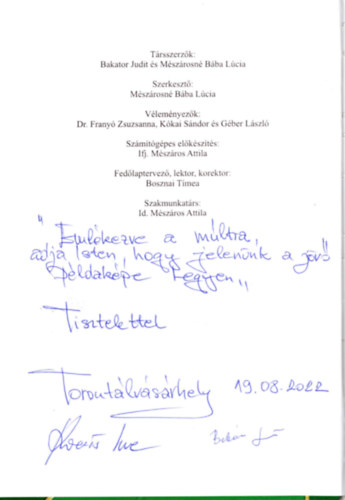 Társszerzők:
Bakator Judit és Mészárosné Bába Lúcia
Szerkesztő:
Mészárosné Bába Lúcia
Véleményezők:
Dr. Franyó Zsuzsanna, Kókai Sándor és Géber László
Számítógépes előkészítés:
Ifj. Mészáros Attila
Fedőlaptervező, lektor, korektor:
Bosznai Tímea
Szakmunkatárs:
Id. Mészáros Attila
" Emlékezve a múltra,
adja Isten, hogy jelenünk a jövő
példaképe legyen "
Tisztelettel
Torontálvásárhely 19.08.2022